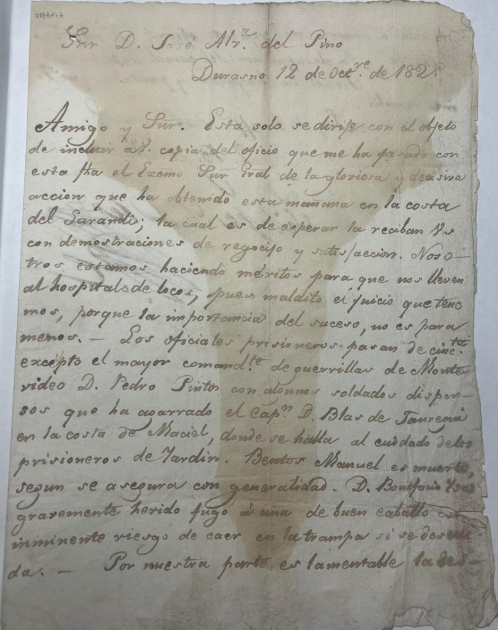 Sor D. José Alv.z del Pino
Durasno 12 de Oct.re de 182
Amigo y Sor. Esta solo se dirije con el objeto
de incluir á V. copia del oficio que me ha pasado con
esta fha el Excmo Sor Gral de la gloriosa y decisiva
accion que ha obtenido esta mañana en la costa
del Sarandi; la cual es de esperar la reciban Vs
con demostraciones de regocijo y satisfaccion. Noso-
tros estamos haciendo méritos para que nos lleven
al hospital de locos, pues maldito el juicio que tene
mos, porque la importancia del suceso, no es para
menos. — Los oficiales prisioneros pasan de
excepto el mayor comand.te de guerrillas de Monte
video D. Pedro Pintos con algunos soldados disper-
sos que ha agarrado el Cap.n D. Blas de Jauregui
en la costa de Maciel, donde se halla al cuidado de los
prisioneros de Jardin. Bentos Manuel es muerto,
segun se asegura con generalidad. D. Bonifacio
gravemente herido fugó á uña de buen caballo
inminente riesgo de caer en la trampa si se descui
da. — Por nuestra parte es lamentable la des-